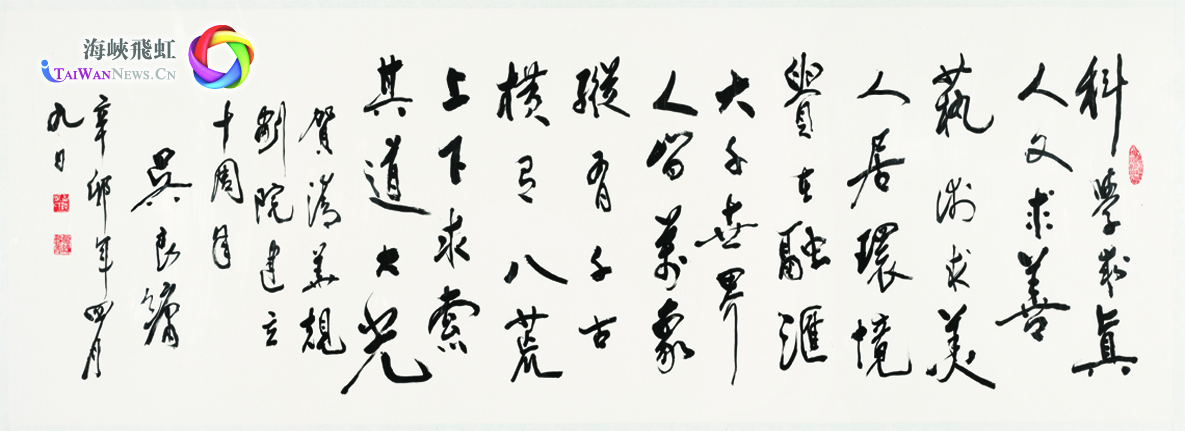 科學求真
人文求善
藝術求美
人居環境
貴在融滙
大千世界
人萬象
縱有千古
橫有八荒
上下求索
其道大光
賀清華規
劃院建立
十周年
吳良鏞
辛卯年四月
九日
海峽飛虹
TAIWANNEWS.CN